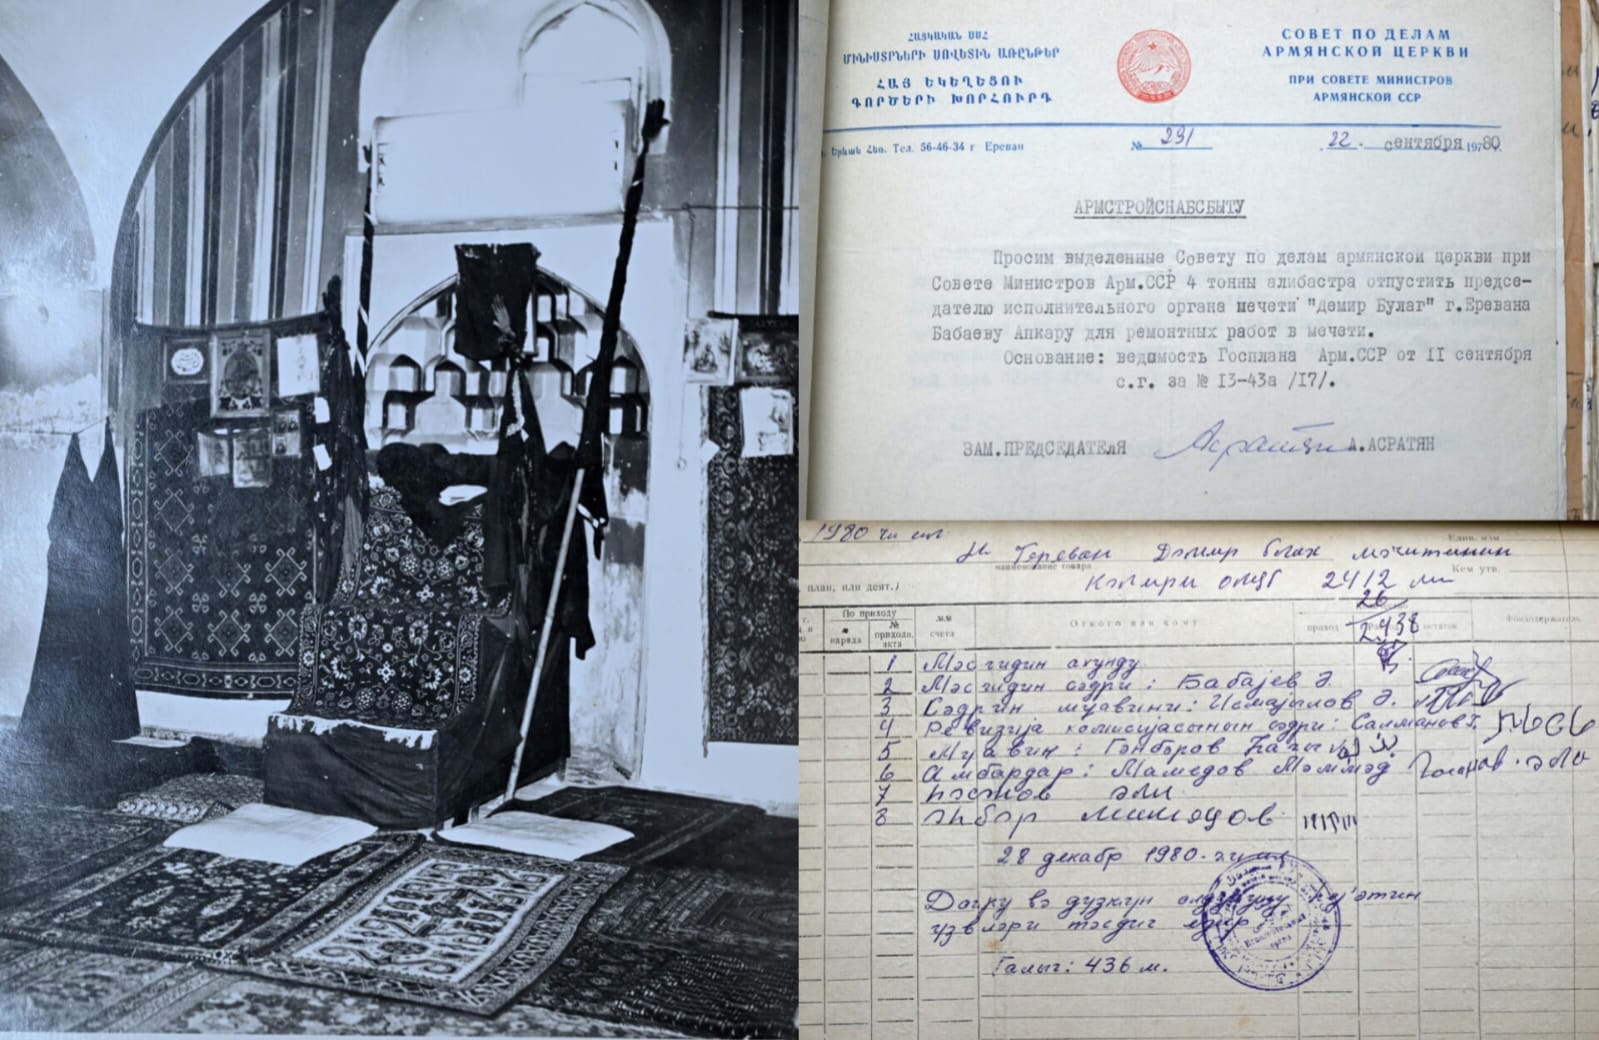 ՀԱՅԿԱԿԱՆ ՍՍՀ
ՄԻՆԻՍՏՐՆԵՐԻ ՍՈՎԵՏԻՆ ԱՌԸՆԹԵՐ
ՀԱՅ ԵԿԵՂԵՑՈՒ
ԳՈՐԾԵՐԻ ԽՈՐՀՈՒՐԴ
СОВЕТ ПО ДЕЛАМ
АРМЯНСКОЙ ЦЕРКВИ
ПРИ СОВЕТЕ МИНИСТРОВ
АРМЯНСКОЙ ССР
Երևան Հեռ. Тел. 56-46-34 г Ереван
№ 231
22. сентября 1980г.
АРМСТРОЙСНАБСБЫТУ
Просим выделенные Совету по делам армянской церкви при
Совете Министров Арм.ССР 4 тонны алибастра отпустить предсе-
дателю исполнительного органа мечети "Демир Булаг" г.Еревана
Бабаеву Апкару для ремонтных работ в мечети.
Основание: ведомость Госплана Арм.ССР от II сентября
с.г. за № I3-43а /I7/.
ЗАМ.ПРЕДСЕДАТЕЛЯ А.АСРАТЯН
1980 чи ил
Един. изм
наименование товара
Кем утв.
план, или деят.)
Кәлири олуб 2412 ман
26
2438
По приходу
№ наряда
№ прихода. акта
№№ счета
От кого или кому
приход
остаток
Фондодержатель
1 Мәсҹидин ахунду
2 Мәсҹидин сәдри: Бабајев Ә.
3 Сәдрин муавини: Исмајылов Ә.
4 Ревизија комисијасынын сәдри: Салманов
5 Муавин: Гәнбәров
6 Амбардар: Мамедов Мәммәд
7 Һәсәнов Әли
8
28 декабр 1980-чи ил
Доғру вә дүзҝүн олдуғуну һеј'әтин
үзвләри тәсдиг едир
Галыг: 436 м.